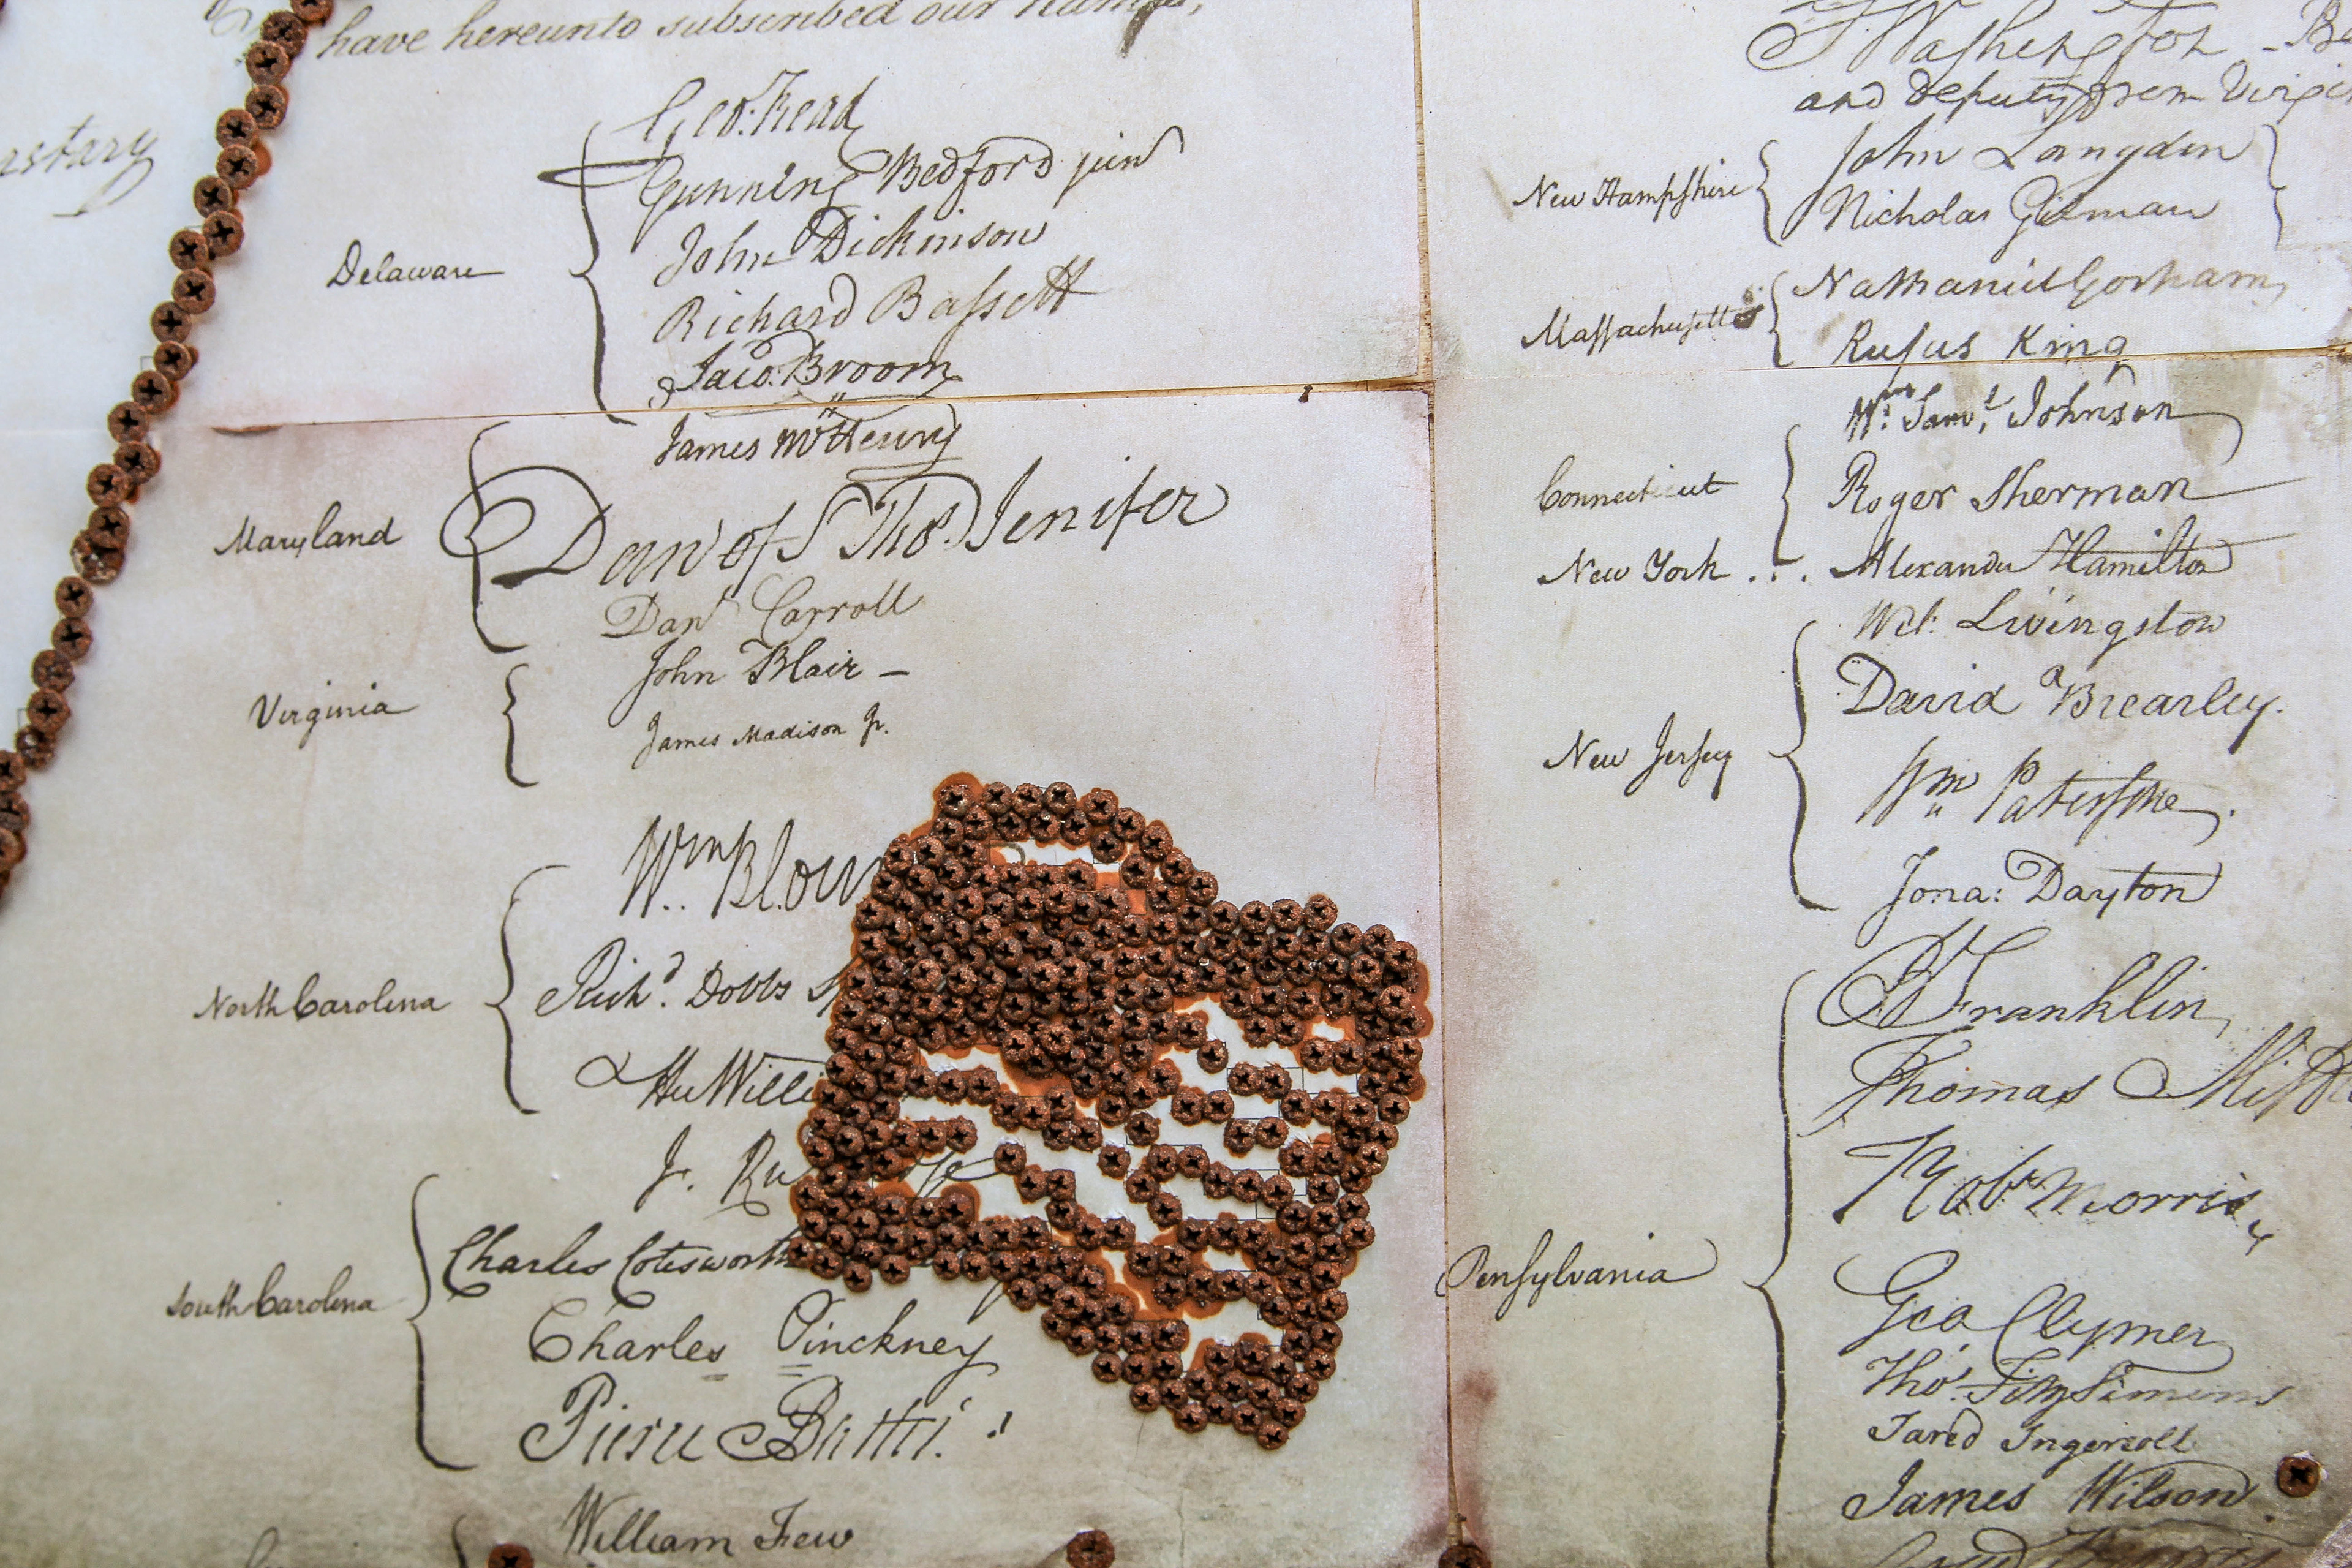 have hereunto subscribed our Names,
rstary
Delaware
Geo: Read
Gunning Bedford jun
John Dickinson
Richard Bassett
Jaco: Broom
Maryland
James McHenry
Dan of St Thos. Jenifer
Danl Carroll
Virginia
John Blair –
James Madison Jr.
North Carolina
Wm Bloun
Richd. Dobbs Sp
Hu Willi
South Carolina
J. Ru
Charles Cotesworth
Charles Pinckney
Pierce Butler.
William Few
Washington –
and deputy from Virgi
New Hampshire
John Langdon
Nicholas Gilman
Massachusetts
Nathaniel Gorham
Rufus King
Connecticut
Wm. Saml. Johnson
Roger Sherman
New York . . . Alexander Hamilton
New Jersey
Wil: Livingston
David Brearley.
Wm Paterson.
Jona: Dayton
Pensylvania
B Franklin
Thomas Miff
Robt Morris
Geo Clymer
Thos. FitzSimons
Jared Ingersoll
James Wilson